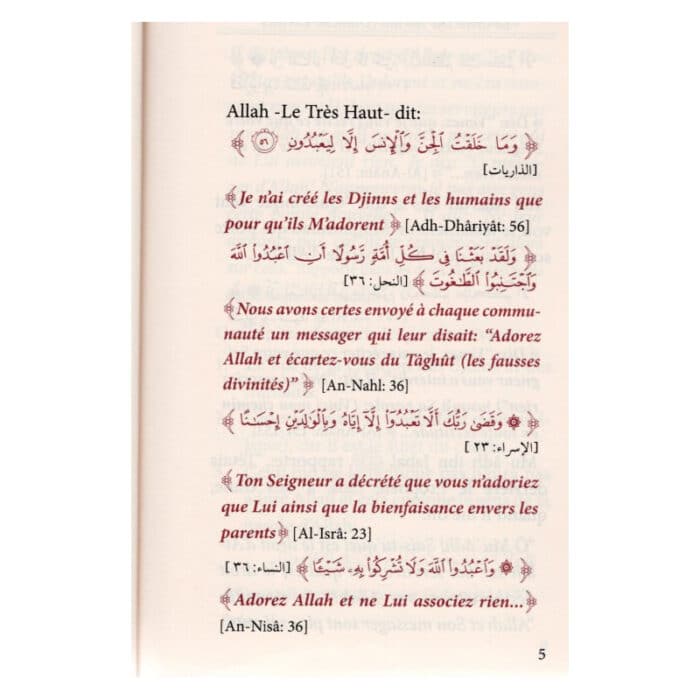 Allah -Le Très Haut- dit:
﴿ وَمَا خَلَقْتُ ٱلْجِنَّ وَٱلْإِنسَ إِلَّا لِيَعْبُدُونِ ٥٦ ﴾
[الذاريات]
﴾Je n'ai créé les Djinns et les humains que
pour qu'ils M'adorent ﴿ [Adh-Dhâriyât: 56]
﴿ وَلَقَدْ بَعَثْنَا فِى كُلِّ أُمَّةٍ رَّسُولًا أَنِ ٱعْبُدُوا۟ ٱللَّهَ
وَٱجْتَنِبُوا۟ ٱلطَّـٰغُوتَ ﴾ [النحل: ٣٦]
﴾Nous avons certes envoyé à chaque commu-
nauté un messager qui leur disait: “Adorez
Allah et écartez-vous du Tâghût (les fausses
divinités)” ﴿ [An-Nahl: 36]
﴿ ۞ وَقَضَىٰ رَبُّكَ أَلَّا تَعْبُدُوٓا۟ إِلَّآ إِيَّاهُ وَبِٱلْوَٰلِدَيْنِ إِحْسَـٰنًا ﴾
[الإسراء: ٢٣]
﴾Ton Seigneur a décrété que vous n'adoriez
que Lui ainsi que la bienfaisance envers les
parents﴿ [Al-Isrâ: 23]
﴿ ۞ وَٱعْبُدُوا۟ ٱللَّهَ وَلَا تُشْرِكُوا۟ بِهِۦ شَيْـًٔا ﴾ [النساء: ٣٦]
﴾Adorez Allah et ne Lui associez rien...﴿
[An-Nisâ: 36]
5